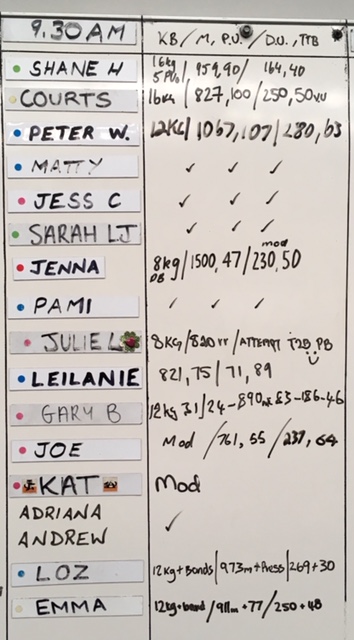 9.30AM KB / M, P.U. / D.U., TTB
SHANE H 16kg 5PUs / 959,90 / 164,40
COURTS 16kg / 827,100 / 250,50
PETER W. 12KG / 1067,107 / 280,63
MATTY ✓ ✓ ✓
JESS C ✓ ✓ ✓
SARAH LJ ✓ ✓ ✓
JENNA 8kg DB / 1500,47 / 230,50 mod
PAMI ✓ ✓ ✓
JULIE L 8KG / 820 / ATTEMPT T2B PB
LEILANIE 821,75 / 71,89
GARY B 12kg 31/24-890 83-186-46
JOE Mod / 761,55 / 237,64
KAT Mod
ADRIANA ✓
ANDREW
LOZ 12kg+Bands / 973m+Press / 269+30
EMMA 12kg+band / 911m+77 / 250+48